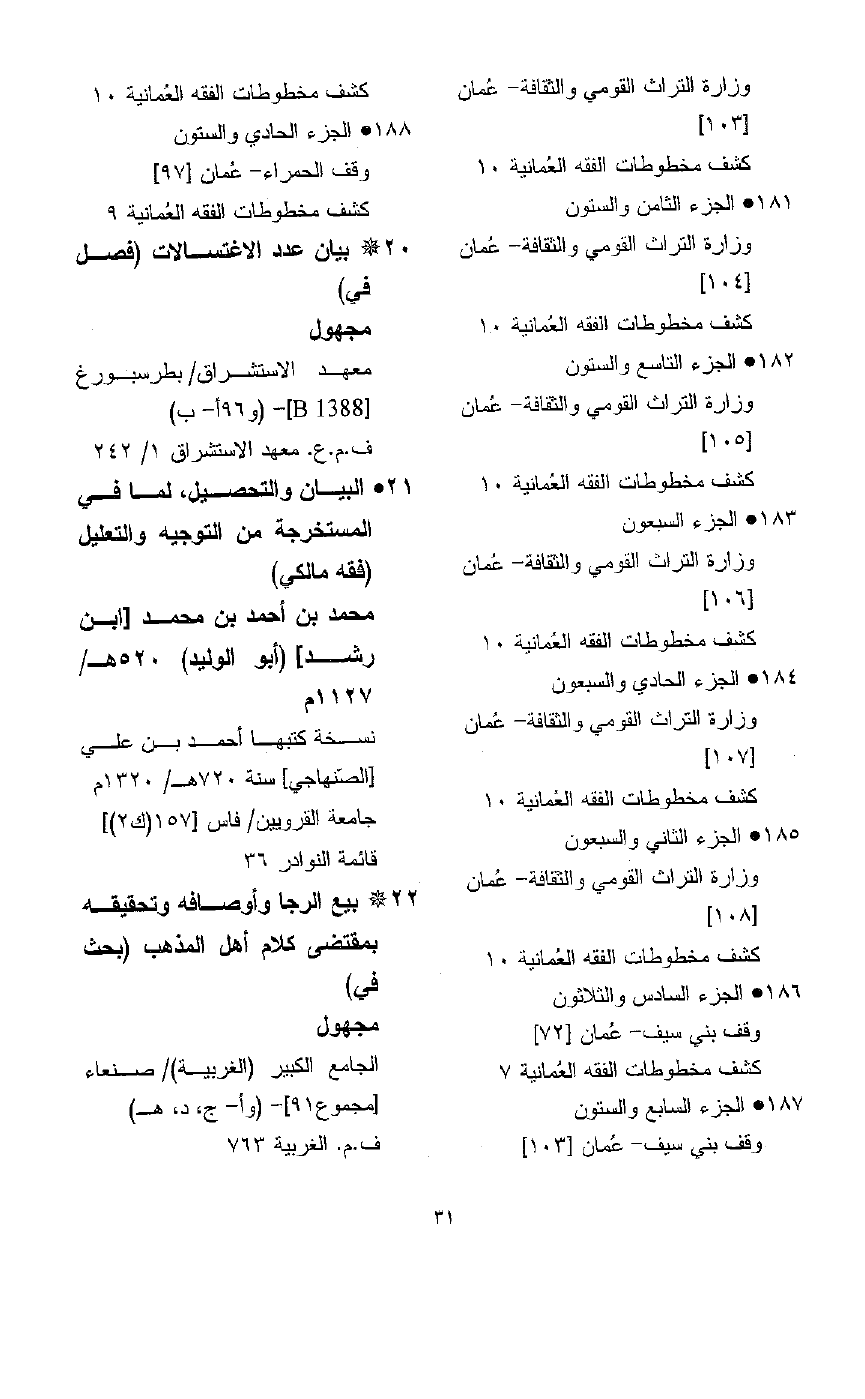 وزارة التراث القومي والثقافة- عُمان
[١٠٣]
كشف مخطوطات الفقه العُمانية ١٠
١٨١● الجزء الثامن والستون
وزارة التراث القومي والثقافة- عُمان
[١٠٤]
كشف مخطوطات الفقه العُمانية ١٠
١٨٢● الجزء التاسع والستون
وزارة التراث القومي والثقافة- عُمان
[١٠٥]
كشف مخطوطات الفقه العُمانية ١٠
١٨٣● الجزء السبعون
وزارة التراث القومي والثقافة- عُمان
[١٠٦]
كشف مخطوطات الفقه العُمانية ١٠
١٨٤● الجزء الحادي والسبعون
وزارة التراث القومي والثقافة- عُمان
[١٠٧]
كشف مخطوطات الفقه العُمانية ١٠
١٨٥● الجزء الثاني والسبعون
وزارة التراث القومي والثقافة- عُمان
[١٠٨]
كشف مخطوطات الفقه العُمانية ١٠
١٨٦● الجزء السادس والثلاثون
وقف بني سيف- عُمان [٧٢]
كشف مخطوطات الفقه العُمانية ٧
١٨٧● الجزء السابع والستون
وقف بني سيف- عُمان [١٠٣]
كشف مخطوطات الفقه العُمانية ١٠
١٨٨● الجزء الحادي والستون
وقف الحمراء- عُمان [٩٧]
كشف مخطوطات الفقه العُمانية ٩
٢٠❋ بيان عدد الاغتسالات (فصل
في)
مجهول
معهد الاستشراق/ بطرسبورغ
[B 1388]- (و٩٦أ- ب)
ف.م.ع. معهد الاستشراق ١/ ٢٤٢
٢١● البيان والتحصيل، لما في
المستخرجة من التوجيه والتعليل
(فقه مالكي)
محمد بن أحمد بن محمد [ابن
رشد] (أبو الوليد) ٥٢٠هـ/
١١٢٧م
نسخة كتبها أحمد بن علي
[الصّنهاجي] سنة ٧٢٠هـ/ ١٣٢٠م
جامعة القرويين/ فاس [١٥٧(ك٢)]
قائمة النوادر ٣٦
٢٢❋ بيع الرجا وأوصافه وتحقيقه
بمقتضى كلام أهل المذهب (بحث
في)
مجهول
الجامع الكبير (الغربية)/ صنعاء
[مجموع٩١]- (وأ- ج، د، هـ)
ف.م. الغربية ٧٦٣
٣١